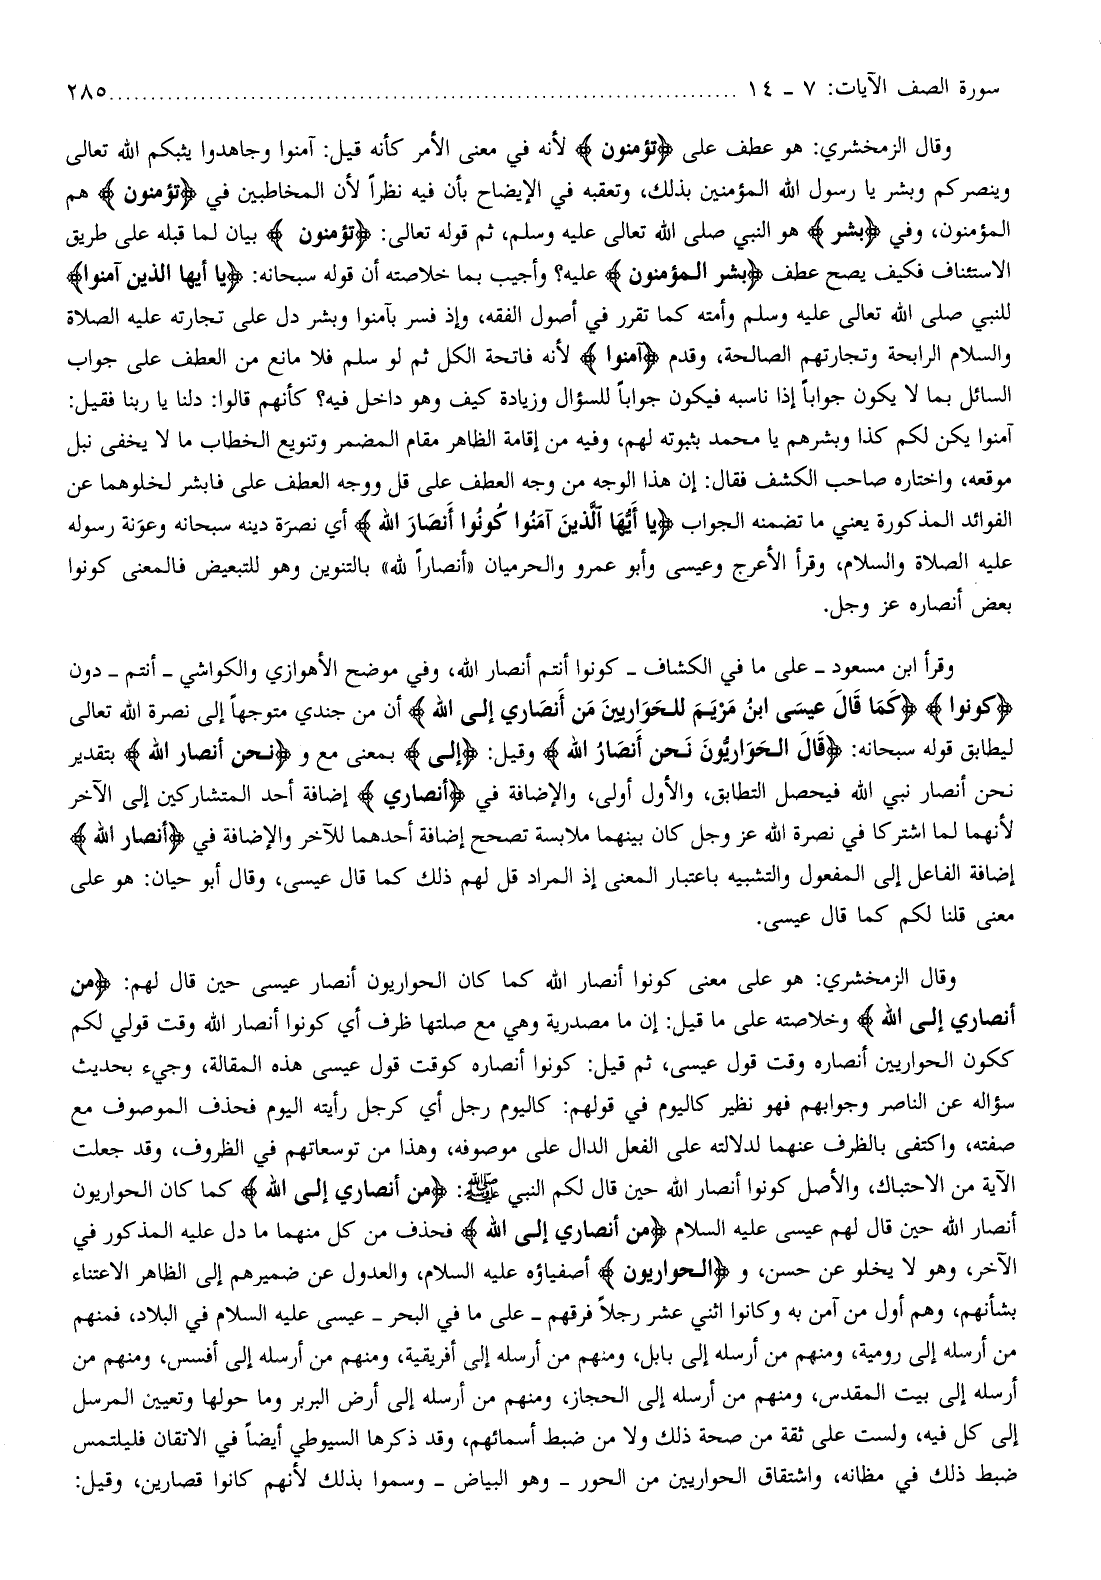 سورة الصف الآيات: ٧ ـ ١٤ ........................................................................... ٢٨٥
وقال الزمخشري: هو عطف على ﴿تؤمنون﴾ لأنه في معنى الأمر كأنه قيل: آمنوا وجاهدوا يثبكم الله تعالى
وينصركم وبشر يا رسول الله المؤمنين بذلك، وتعقبه في الإيضاح بأن فيه نظراً لأن المخاطبين في ﴿تؤمنون﴾ هم
المؤمنون، وفي ﴿بشر﴾ هو النبي صلى الله تعالى عليه وسلم، ثم قوله تعالى: ﴿تؤمنون﴾ بيان لما قبله على طريق
الاستئناف فكيف يصح عطف ﴿بشر المؤمنون﴾ عليه؟ وأجيب بما خلاصته أن قوله سبحانه: ﴿يا أيها الذين آمنوا﴾
للنبي صلى الله تعالى عليه وسلم وأمته كما تقرر في أصول الفقه، وإذ فسر بآمنوا وبشر دل على تجارته عليه الصلاة
والسلام الرابحة وتجارتهم الصالحة، وقدم ﴿آمنوا﴾ لأنه فاتحة الكل ثم لو سلم فلا مانع من العطف على جواب
السائل بما لا يكون جواباً إذا ناسبه فيكون جواباً للسؤال وزيادة كيف وهو داخل فيه؟ كأنهم قالوا: دلنا يا ربنا فقيل:
آمنوا يكن لكم كذا وبشرهم يا محمد بثبوته لهم، وفيه من إقامة الظاهر مقام المضمر وتنويع الخطاب ما لا يخفى نبل
موقعه، واختاره صاحب الكشف فقال: إن هذا الوجه من وجه العطف على قل ووجه العطف على فابشر لخلوهما عن
الفوائد المذكورة يعني ما تضمنه الجواب ﴿يا أَيُّهَا ٱلَّذينَ آمَنُوا كُونُوا أَنصَارَ الله﴾ أي نصرَة دينه سبحانه وعوَنة رسوله
عليه الصلاة والسلام، وقرأ الأعرج وعيسى وأبو عمرو والحرميان «أنصاراً لله» بالتنوين وهو للتبعيض فالمعنى كونوا
بعض أنصاره عز وجل.
وقرأ ابن مسعود ـ على ما في الكشاف ـ كونوا أنتم أنصار الله، وفي موضح الأهوازي والكواشي ـ أنتم ـ دون
﴿كونوا﴾ ﴿كَمَا قَالَ عيسَى ابنُ مَرْيَمَ للحَوَاريينَ مَن أَنصَاري إلى الله﴾ أن من جندي متوجهاً إلى نصرة الله تعالى
ليطابق قوله سبحانه: ﴿قَالَ الحَوَاريُّونَ نَحن أَنصَارُ الله﴾ وقيل: ﴿إلى﴾ بمعنى مع و ﴿نحن أنصار الله﴾ بتقدير
نحن أنصار نبي الله فيحصل التطابق، والأول أولى، والإضافة في ﴿أنصاري﴾ إضافة أحد المتشاركين إلى الآخر
لأنهما لما اشتركا في نصرة الله عز وجل كان بينهما ملابسة تصحح إضافة أحدهما للآخر والإضافة في ﴿أنصار الله﴾
إضافة الفاعل إلى المفعول والتشبيه باعتبار المعنى إذ المراد قل لهم ذلك كما قال عيسى، وقال أبو حيان: هو على
معنى قلنا لكم كما قال عيسى.
وقال الزمخشري: هو على معنى كونوا أنصار الله كما كان الحواريون أنصار عيسى حين قال لهم: ﴿من
أنصاري إلى الله﴾ وخلاصته على ما قيل: إن ما مصدرية وهي مع صلتها ظرف أي كونوا أنصار الله وقت قولي لكم
ككون الحواريين أنصاره وقت قول عيسى، ثم قيل: كونوا أنصاره كوقت قول عيسى هذه المقالة، وجيء بحديث
سؤاله عن الناصر وجوابهم فهو نظير كاليوم في قولهم: كاليوم رجل أي كرجل رأيته اليوم فحذف الموصوف مع
صفته، واكتفى بالظرف عنهما لدلالته على الفعل الدال على موصوفه، وهذا من توسعاتهم في الظروف، وقد جعلت
الآية من الاحتباك، والأصل كونوا أنصار الله حين قال لكم النبي ﷺ: ﴿من أنصاري إلى الله﴾ كما كان الحواريون
أنصار الله حين قال لهم عيسى عليه السلام ﴿من أنصاري إلى الله﴾ فحذف من كل منهما ما دل عليه المذكور في
الآخر، وهو لا يخلو عن حسن، و ﴿الحواريون﴾ أصفياؤه عليه السلام، والعدول عن ضميرهم إلى الظاهر الاعتناء
بشأنهم، وهم أول من آمن به وكانوا اثني عشر رجلاً فرقهم ـ على ما في البحر ـ عيسى عليه السلام في البلاد، فمنهم
من أرسله إلى رومية، ومنهم من أرسله إلى بابل، ومنهم من أرسله إلى أفريقية، ومنهم من أرسله إلى أفسس، ومنهم من
أرسله إلى بيت المقدس، ومنهم من أرسله إلى الحجاز، ومنهم من أرسله إلى أرض البربر وما حولها وتعيين المرسل
إلى كل فيه، ولست على ثقة من صحة ذلك ولا من ضبط أسمائهم، وقد ذكرها السيوطي أيضاً في الاتقان فليلتمس
ضبط ذلك في مظانه، واشتقاق الحواريين من الحور ـ وهو البياض ـ وسموا بذلك لأنهم كانوا قصارين، وقيل: